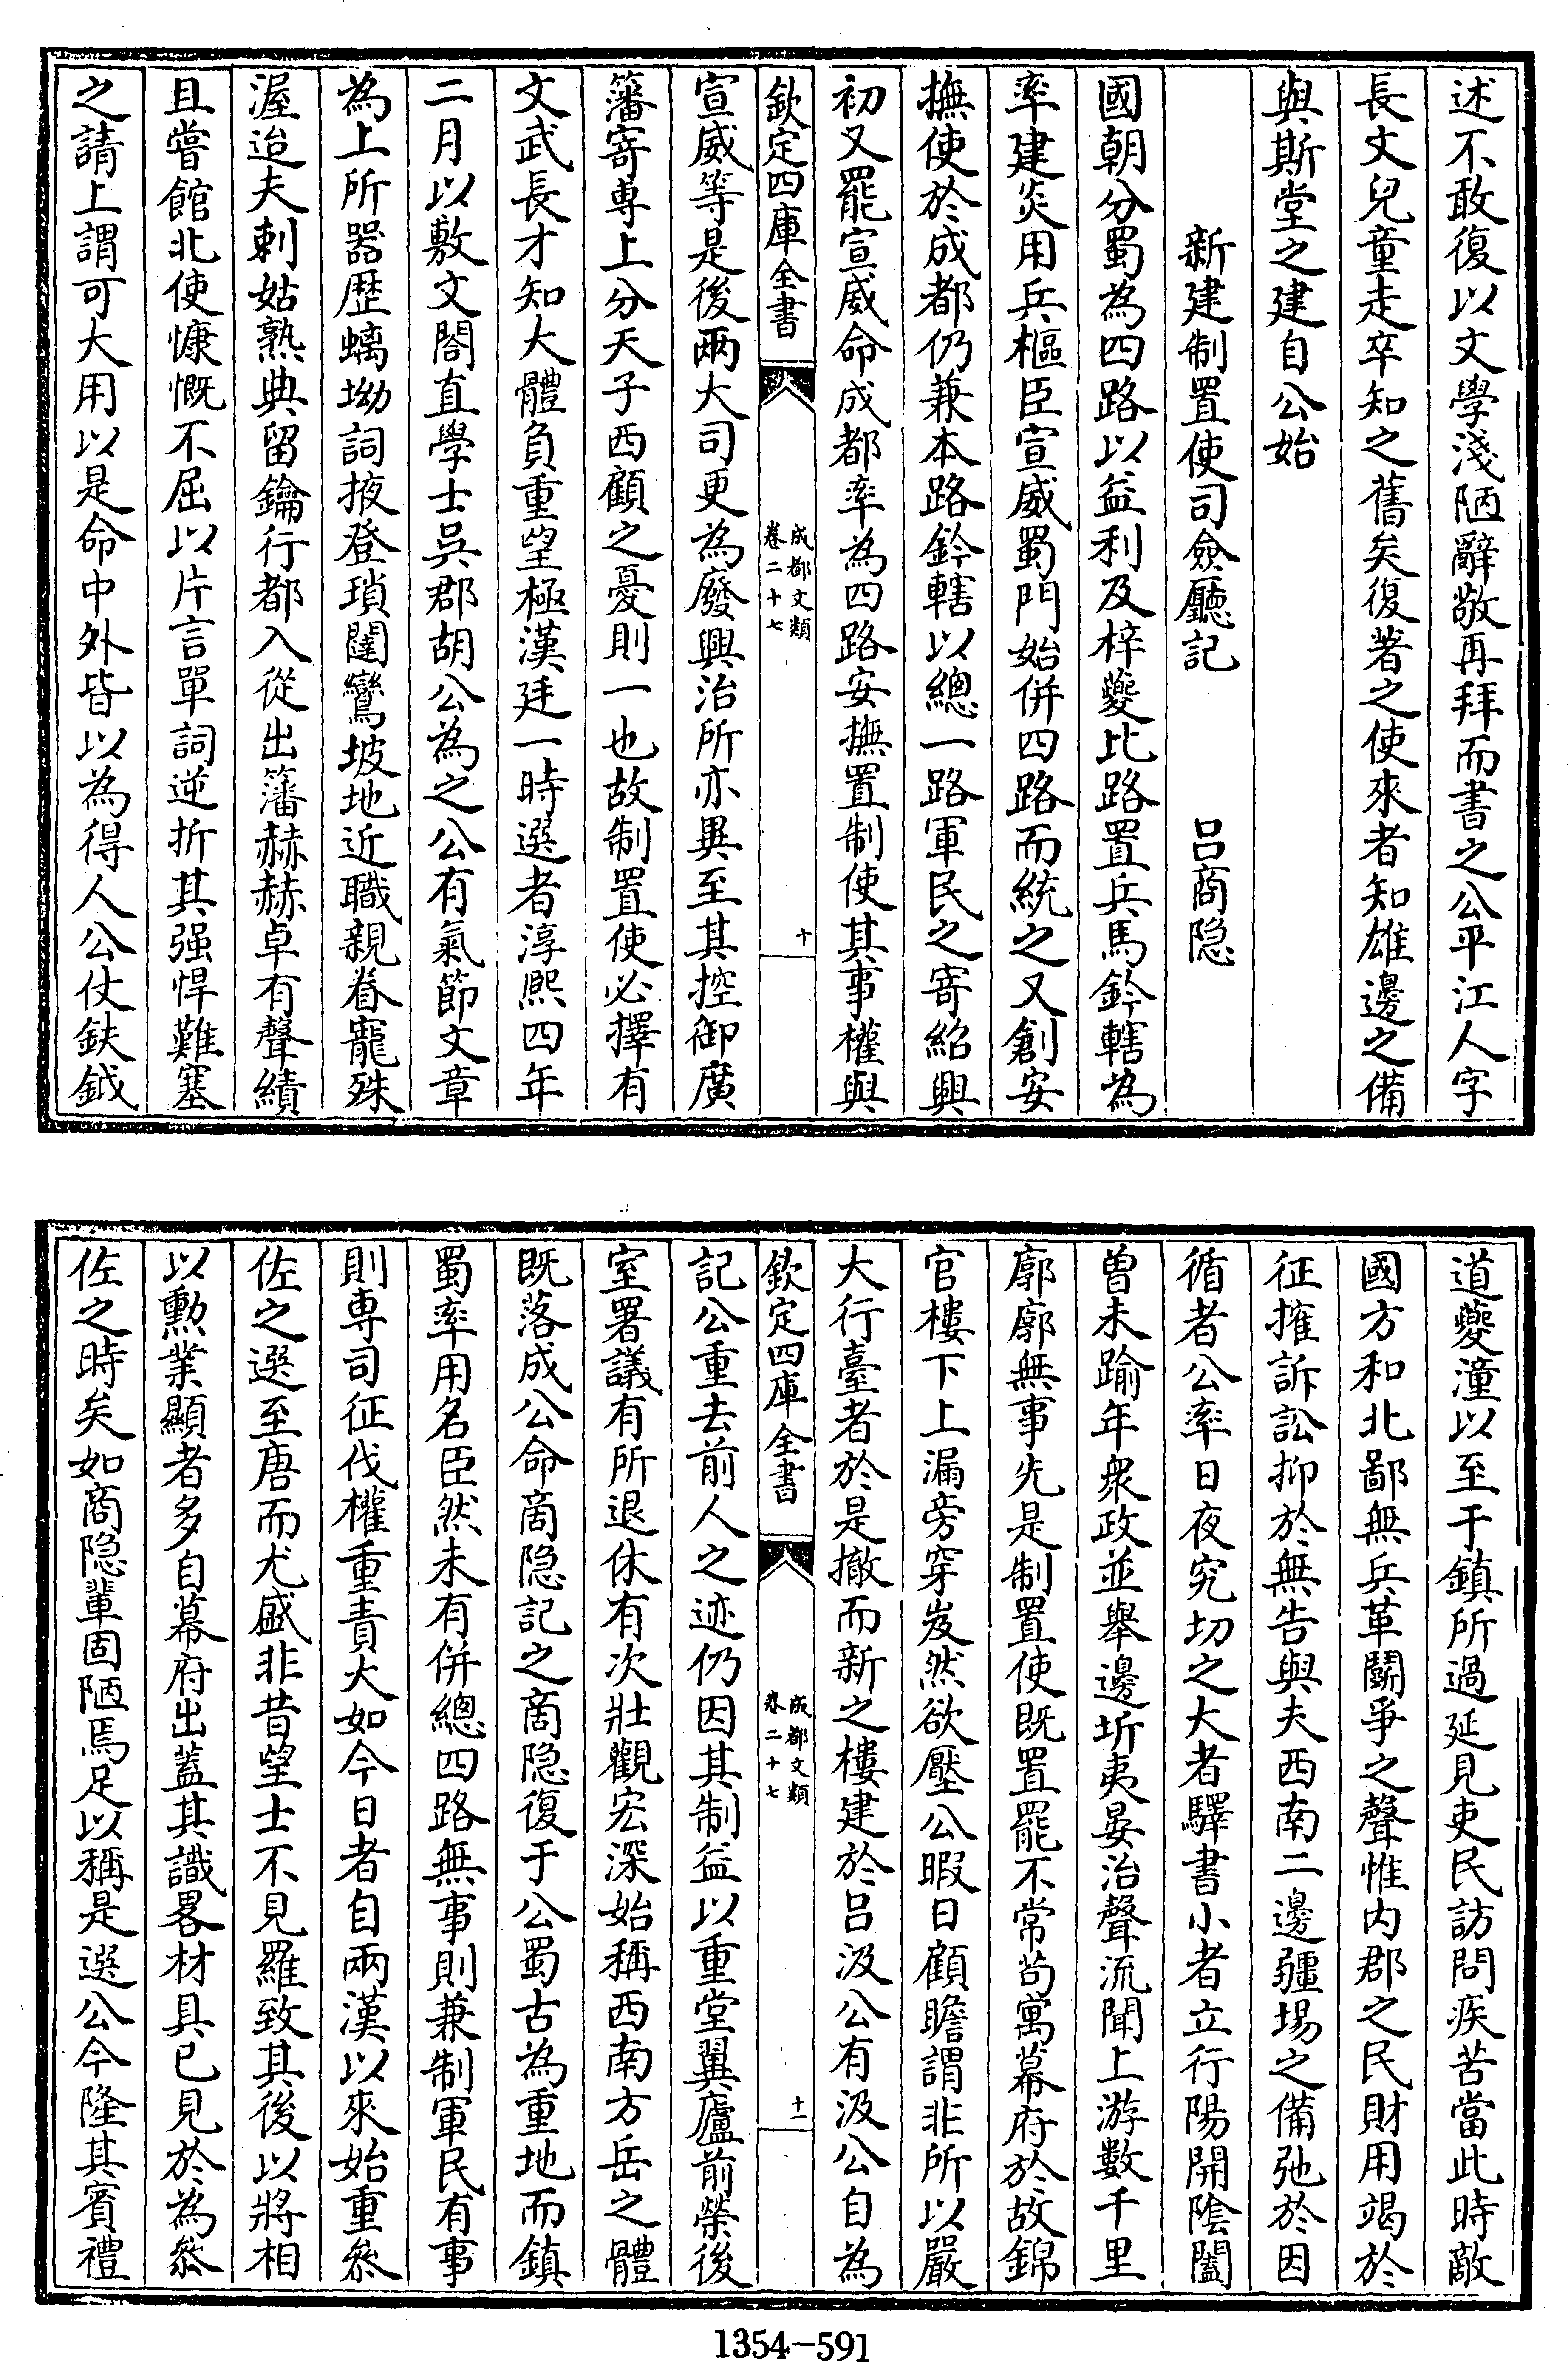 述不敢復以文學淺陋辭敬再拜而書之公平江人字
長文兒童走卒知之舊矣復著之使來者知雄邊之備
與斯堂之建自公始
新建制置使司僉廳記　呂商隐
國朝分蜀為四路以益利及梓夔比路置兵馬鈐轄為
率建炎用兵樞臣宣威蜀門始併四路而統之又創安
撫使於成都仍兼本路鈐轄以總一路軍民之寄紹興
初又罷宣威命成都率為四路安撫置制使其事權與
欽定四庫全書　成都文類　卷二十七　十
宣威等是後兩大司更為廢興治所亦異至其控御廣
籓寄専上分天子西顧之憂則一也故制置使必擇有
文武長才知大體負重望極漢廷一時選者淳熙四年
二月以敷文閣直學士吳郡胡公為之公有氣節文章
為上所器歴螭坳詞掖登瑣闥鸞坡地近職親眷寵殊
渥迨夫剌姑熟典留鑰行都入從出籓赫赫卓有聲績
且嘗館北使慷慨不屈以片言單詞逆折其强悍難塞
之請上謂可大用以是命中外皆以為得人公仗鈇鉞
道夔潼以至于鎮所過延見吏民訪問疾苦當此時敵
國方和北鄙無兵革鬬爭之聲惟内郡之民財用竭於
征搉訴訟抑於無告與夫西南二邊疆埸之備弛於因
循者公率日夜究切之大者驛書小者立行陽開陰闔
曽未踰年衆政並舉邊圻夷晏治聲流聞上游數千里
廓廓無事先是制置使既置罷不常茍寓幕府於故錦
官樓下上漏旁穿岌然欲壓公暇日顧瞻謂非所以嚴
大行臺者於是撤而新之樓建於呂汲公有汲公自為
欽定四庫全書　成都文類　卷二十七　十一
記公重去前人之迹仍因其制益以重堂翼廬前榮後
室署議有所退休有次壯觀宏深始稱西南方岳之體
既落成公命商隐記之商隐復于公蜀古為重地而鎮
蜀率用名臣然未有併總四路無事則兼制軍民有事
則専司征伐權重責大如今日者自兩漢以來始重叅
佐之選至唐而尤盛非昔望士不見羅致其後以將相
以勲業顯者多自幕府出蓋其識畧材具已見於為叅
佐之時矣如商隐輩固陋焉足以稱是選公今隆其賓禮
1354—591